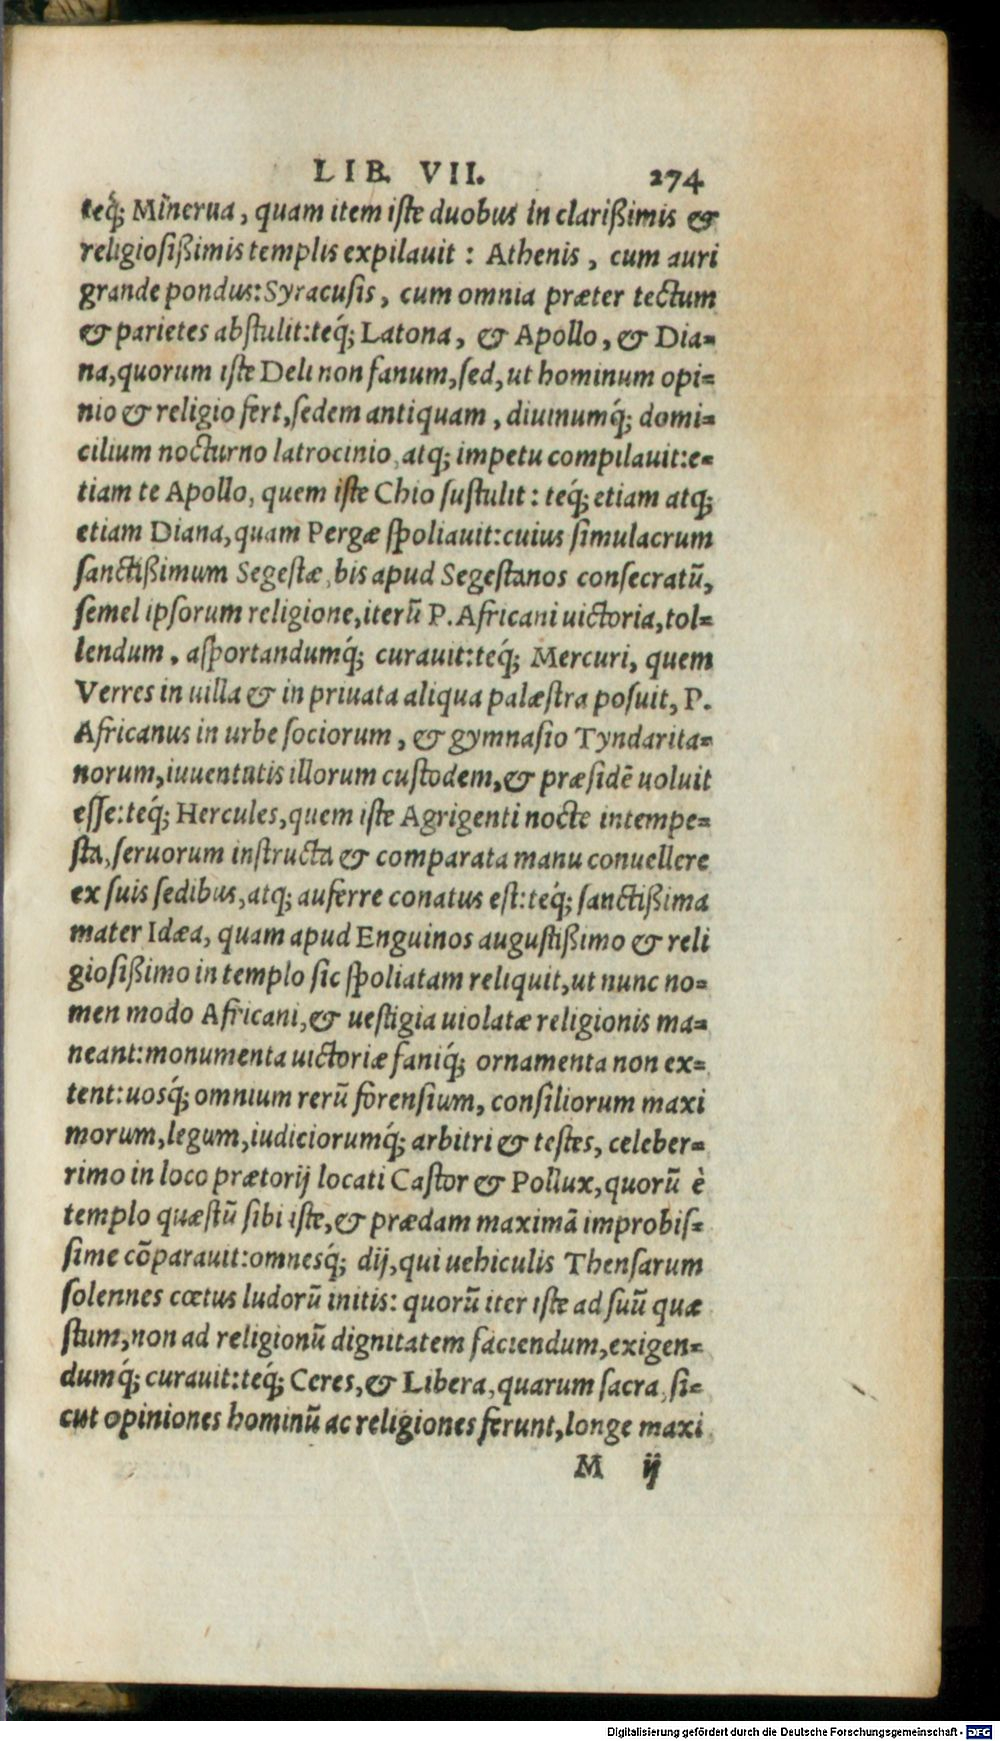 LIB. VII. 274
teq́; Minerua, quam item iste duobus in clarißimis &
religiosißimis templis expilauit : Athenis, cum auri
grande pondus: Syracusis, cum omnia præter tectum
& parietes abstulit: teq́; Latona, & Apollo, & Dia=
na, quorum iste Deli non fanum, sed, ut hominum opi=
nio & religio fert, sedem antiquam, diuinumq́; domi=
cilium nocturno latrocinio, atq; impetu compilauit: e=
tiam te Apollo, quem iste Chio sustulit : teq́; etiam atq;
etiam Diana, quam Pergæ spoliauit: cuius simulacrum
sanctißimum Segestæ, bis apud Segestanos consecratū,
semel ipsorum religione, iterū P. Africani uictoria, tol=
lendum, asportandumq́; curauit: teq́; Mercuri, quem
Verres in uilla & in priuata aliqua palæstra posuit, P.
Africanus in urbe sociorum, & gymnasio Tyndarita=
norum, iuuentutis illorum custodem, & præsidē uoluit
esse: teq́; Hercules, quem iste Agrigenti nocte intempe=
sta, seruorum instructa & comparata manu conuellere
ex suis sedibus, atq; auferre conatus est: teq́; sanctißima
mater Idæa, quam apud Enguinos augustißimo & reli
giosißimo in templo sic spoliatam reliquit, ut nunc no=
men modo Africani, & uestigia uiolatæ religionis ma=
neant: monumenta uictoriæ faniq́; ornamenta non ex=
tent: uosq́; omnium rerū forensium, consiliorum maxi
morum, legum, iudiciorumq́; arbitri & testes, celeber=
rimo in loco prætorij locati Castor & Pollux, quorū è
templo quæstū sibi iste, & prædam maximā improbis=
sime cōparauit: omnesq́; dij, qui uehiculis Thensarum
solennes cœtus ludorū initis: quorū iter iste ad suū quæ
stum, non ad religionū dignitatem faciendum, exigen=
dumq́; curauit: teq́; Ceres, & Libera, quarum sacra, si=
cut opiniones hominū ac religiones ferunt, longe maxi
M ij
Digitalisierung gefördert durch die Deutsche Forschungsgemeinschaft - DFG